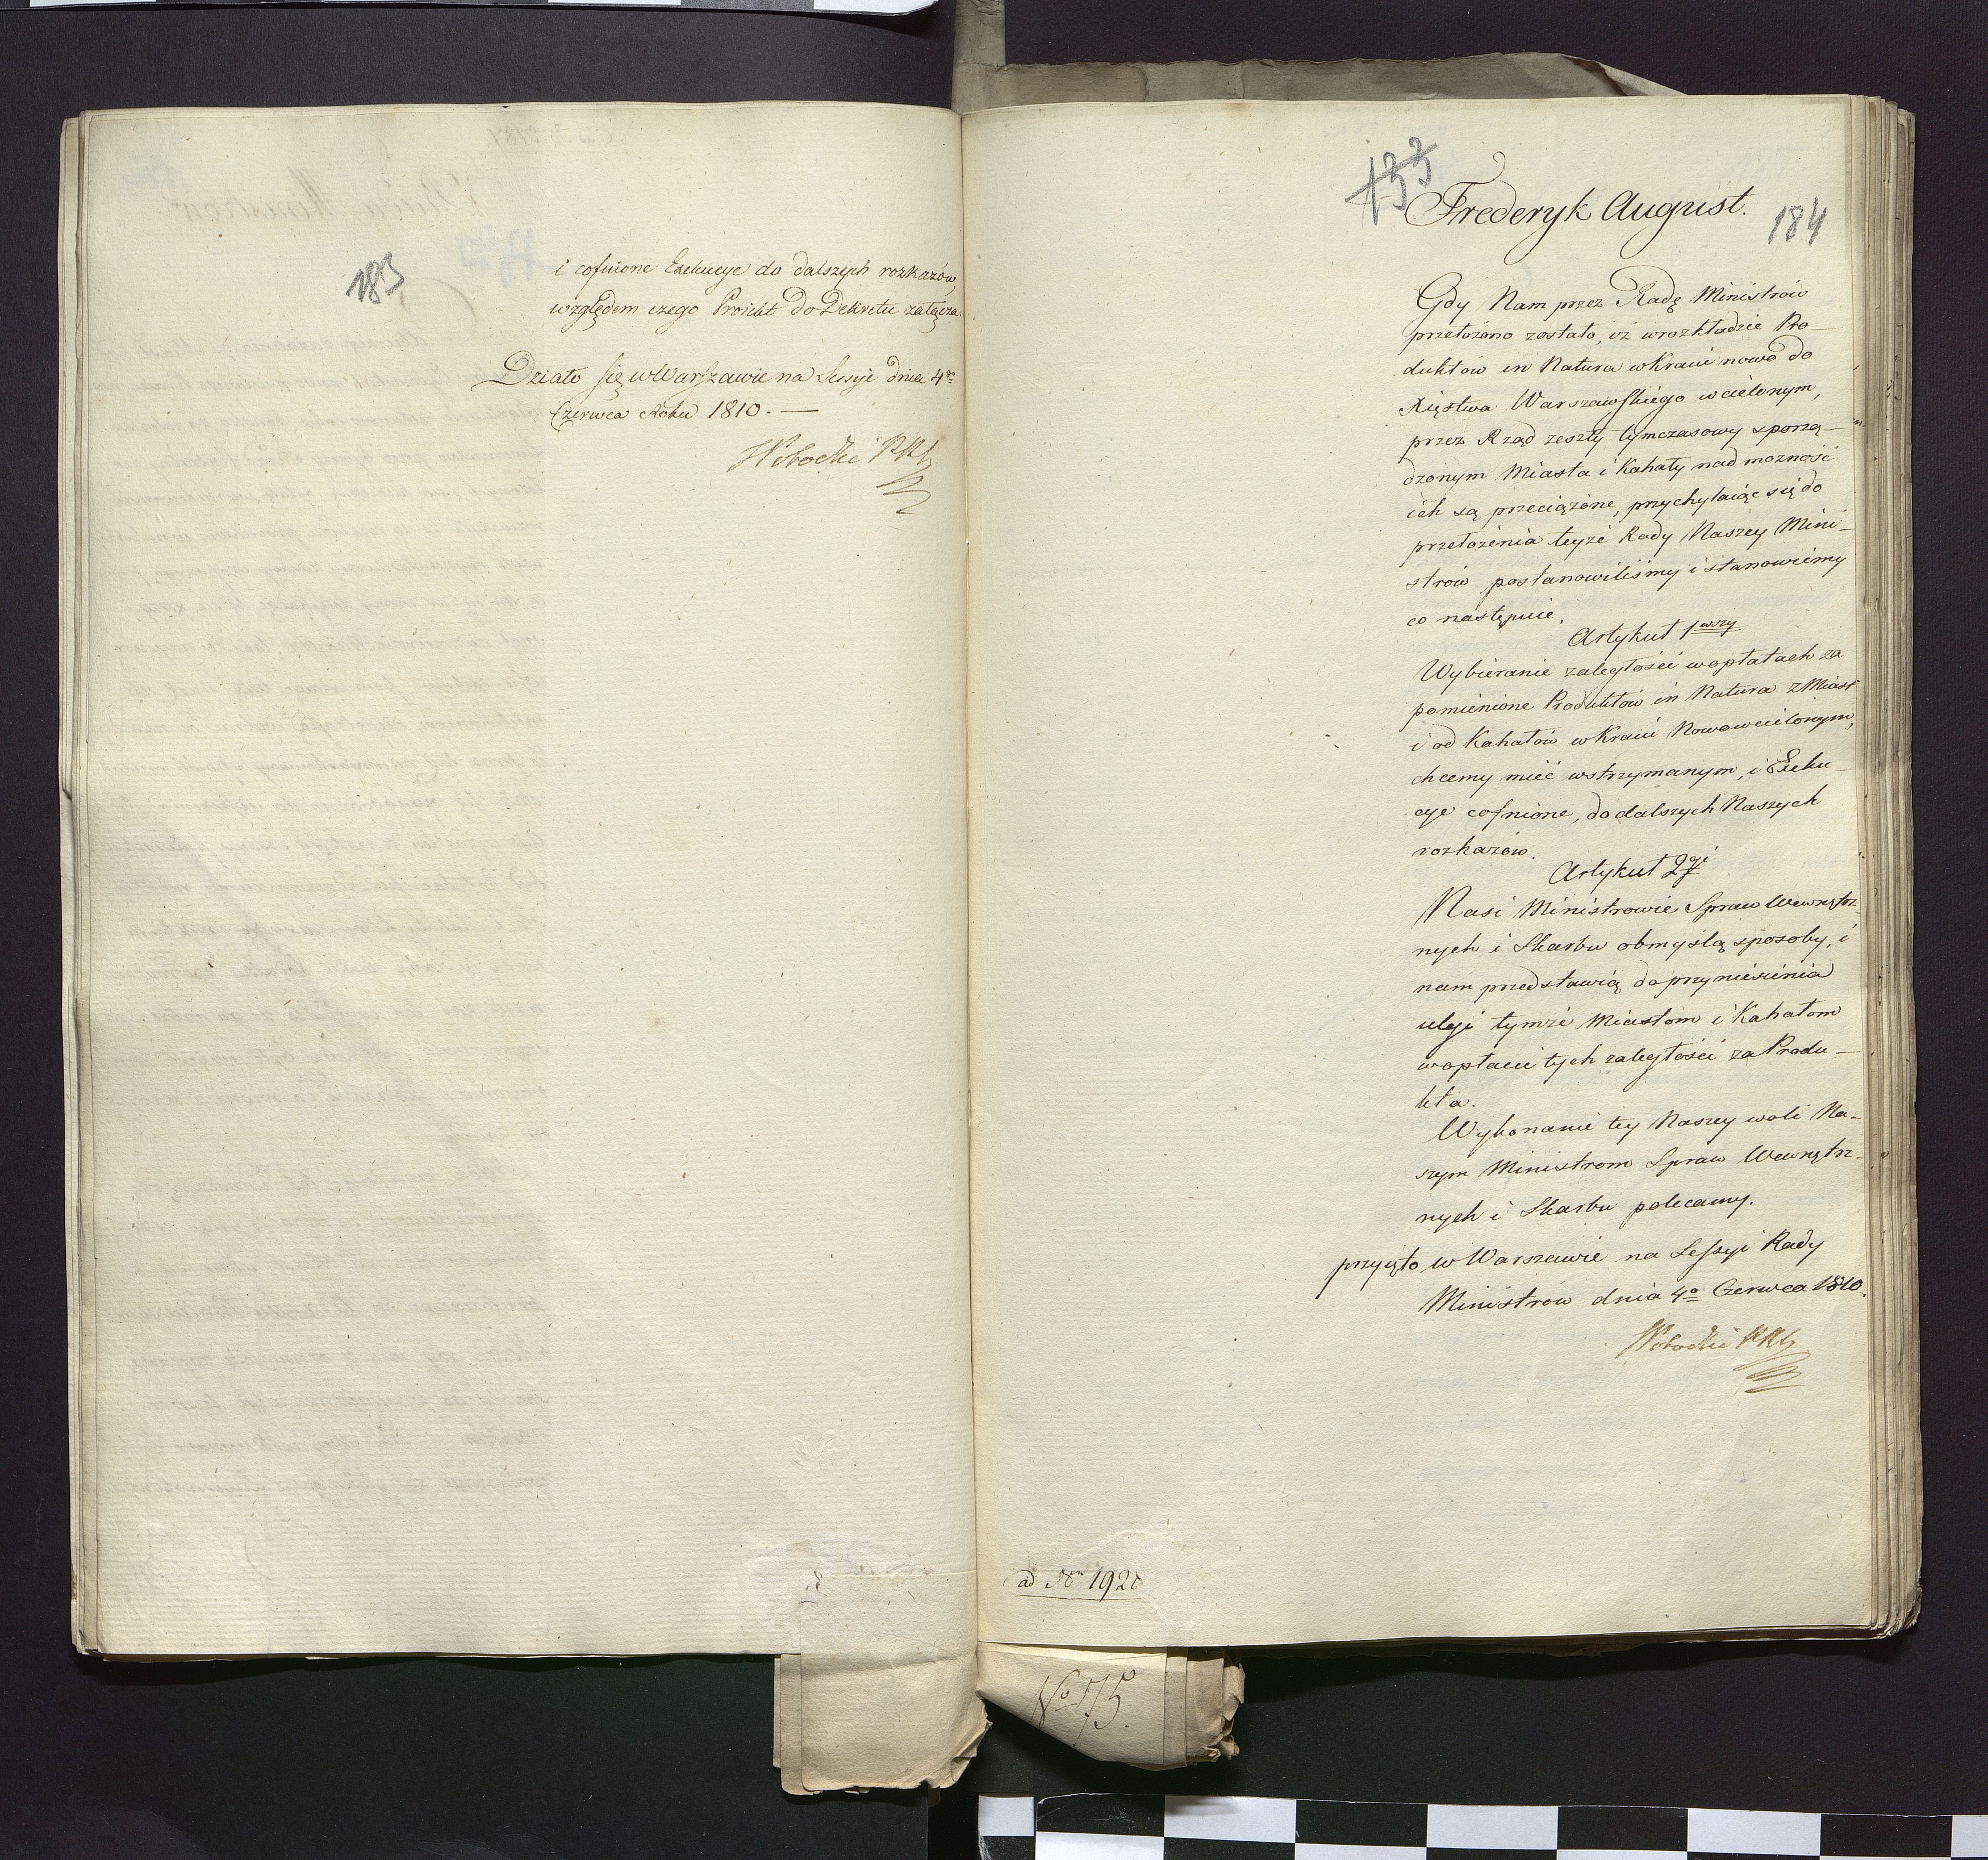 183
i cofnione Exekucye do dalszych rozkazów,
względem czego Proiekt do Dekretu załącza.
Działo się w Warszawie na Sessyi dnia 4go
Czerwca Roku 1810. —
133
Frederyk August.
184
Gdy Nam przez Radę Ministrów
przełożono zostało, iż w rozkładzie Pro-
duktów in Natura w Kraiu nowo do
Xięstwa Warszawskiego wcielonym,
przez Rząd zeszły tymczasowy sporzą-
dzonym Miasta i Kahały nad możność
ich są przeciążone, przychylaiąc się do
przełożenia teyże Rady Naszey Mini-
strów postanowiliśmy i stanowiemy
co następuie.
Artykuł 1wszy
Wybieranie zaległości w opłatach za
pomienione Produktów in Natura z Miast
i od Kahałów w Kraiu Nowowcielonym,
chcemy mieć wstrzymanym, i Exeku-
cye cofnione, do dalszych Naszych
rozkazów.
Artykuł 2gi
Nasi Ministrowie Spraw Wewnętrz-
nych i Skarbu obmyślą sposoby, i
nam przedstawią do przyniesienia
ulgi tymże Miastom i Kahałom
w opłacie tych zaległości za Produ-
kta.
Wykonanie tey Naszey woli Na-
szym Ministrom Spraw Wewnętrz-
nych i Skarbu polecamy.
przyięto w Warszawie na Sessyi Rady
Ministrów dnia 4o Czerwca 1810.
ad Nrm 1928
No 175.